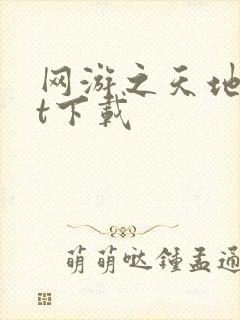 网游之天地
t下载
萌萌哒鍾孟通